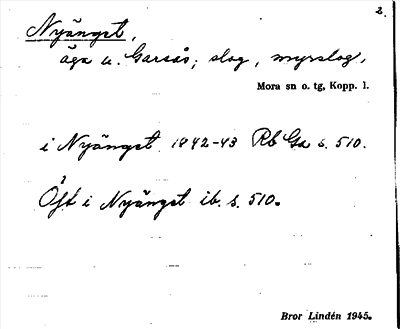 2.
Nyänget,
äga u. Garsås; slog, myrslog,
Mora sn o. tg, Kopp. l.
i Nyänget 1942-43 Rb Ga s. 510.
Öft i Nyänget ib. s. 510.
Bror Lindén 1945.